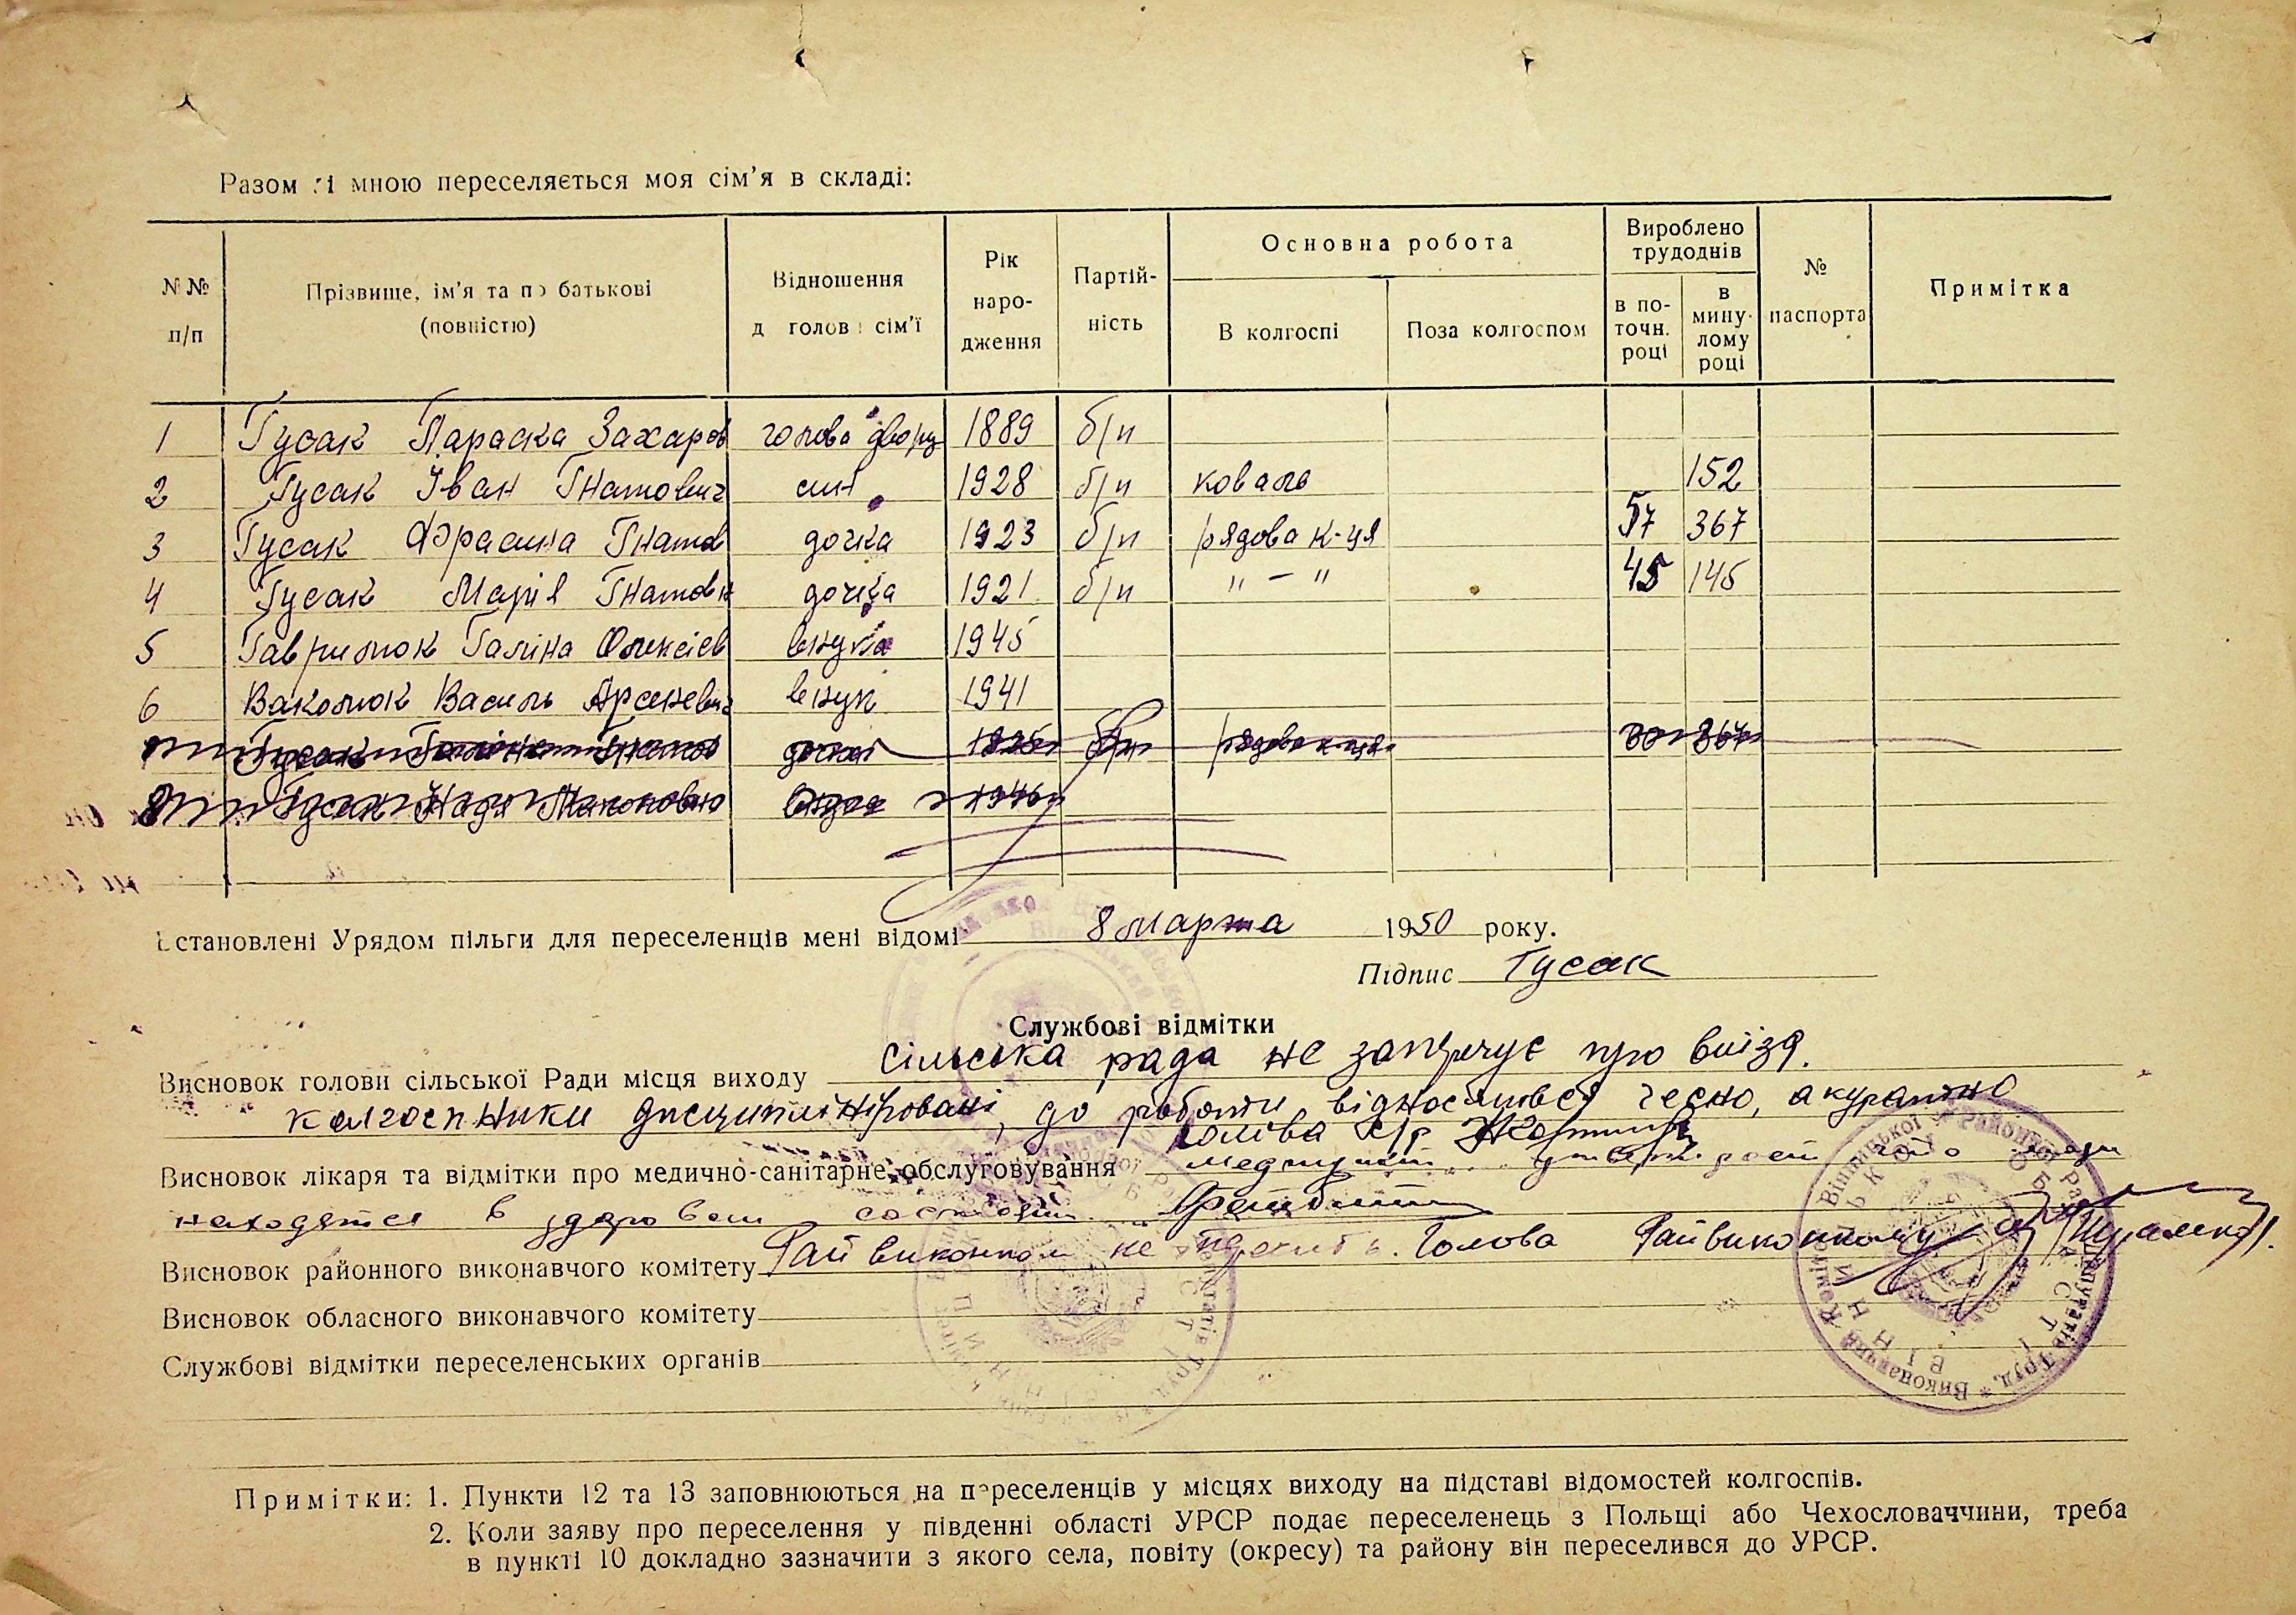 Разом зі мною переселяється моя сім’я в складі:
N №
п/п
Прізвище, ім’я та по батькові
(повністю)
Відношення
д голов сім’ї
Рік
наро-
дження
Партій-
ність
Основна робота
В колгоспі
Поза колгоспом
Вироблено
трудоднів
в по-
точн.
році
в
мину-
лому
році
№
паспорта
Примітка
1 Гусак Параска Захаров голова двору 1889 б/п
2 Гусак Іван Гнатович син 1928 б/п коваль 152
3 Гусак Фрасина Гнатов дочка 1923 б/п рядова к-ця 57 367
4 Гусак Марія Гнатовн дочка 1921 б/п " — " 45 145
5 Гаврилюк Галіна Олексіев внучка 1945
6 Ваколюк Василь Арсеневич внук 1941
Гусак Галіна Гнатов дочка 1925 б/п рядова к-ця 30 367
8 Гусак Надя 1946
Встановлені Урядом пільги для переселенців мені відомі 8 марта 1950 року.
Підпис Гусак
Службові відмітки
Висновок голови сільської Ради місця виходу сільська рада не запречує про виїзд.
колгоспники дисциплініровані, до роботи відносилися чесно, акуратно
Голова с/р
Висновок лікаря та відмітки про медично-санітарне обслуговування медпункт що люди
находятся в здоровом состоянии
Висновок районного виконавчого комітету Райвиконком не перечить. Голова Райвиконкому
Висновок обласного виконавчого комітету
Службові відмітки переселенських органів
Примітки: 1. Пункти 12 та 13 заповнюються на переселенців у місцях виходу на підставі відомостей колгоспів.
2. Коли заяву про переселення у південні області УРСР подає переселенець з Польщі або Чехословаччини, треба
в пункті 10 докладно зазначити з якого села, повіту (окресу) та району він переселився до УРСР.